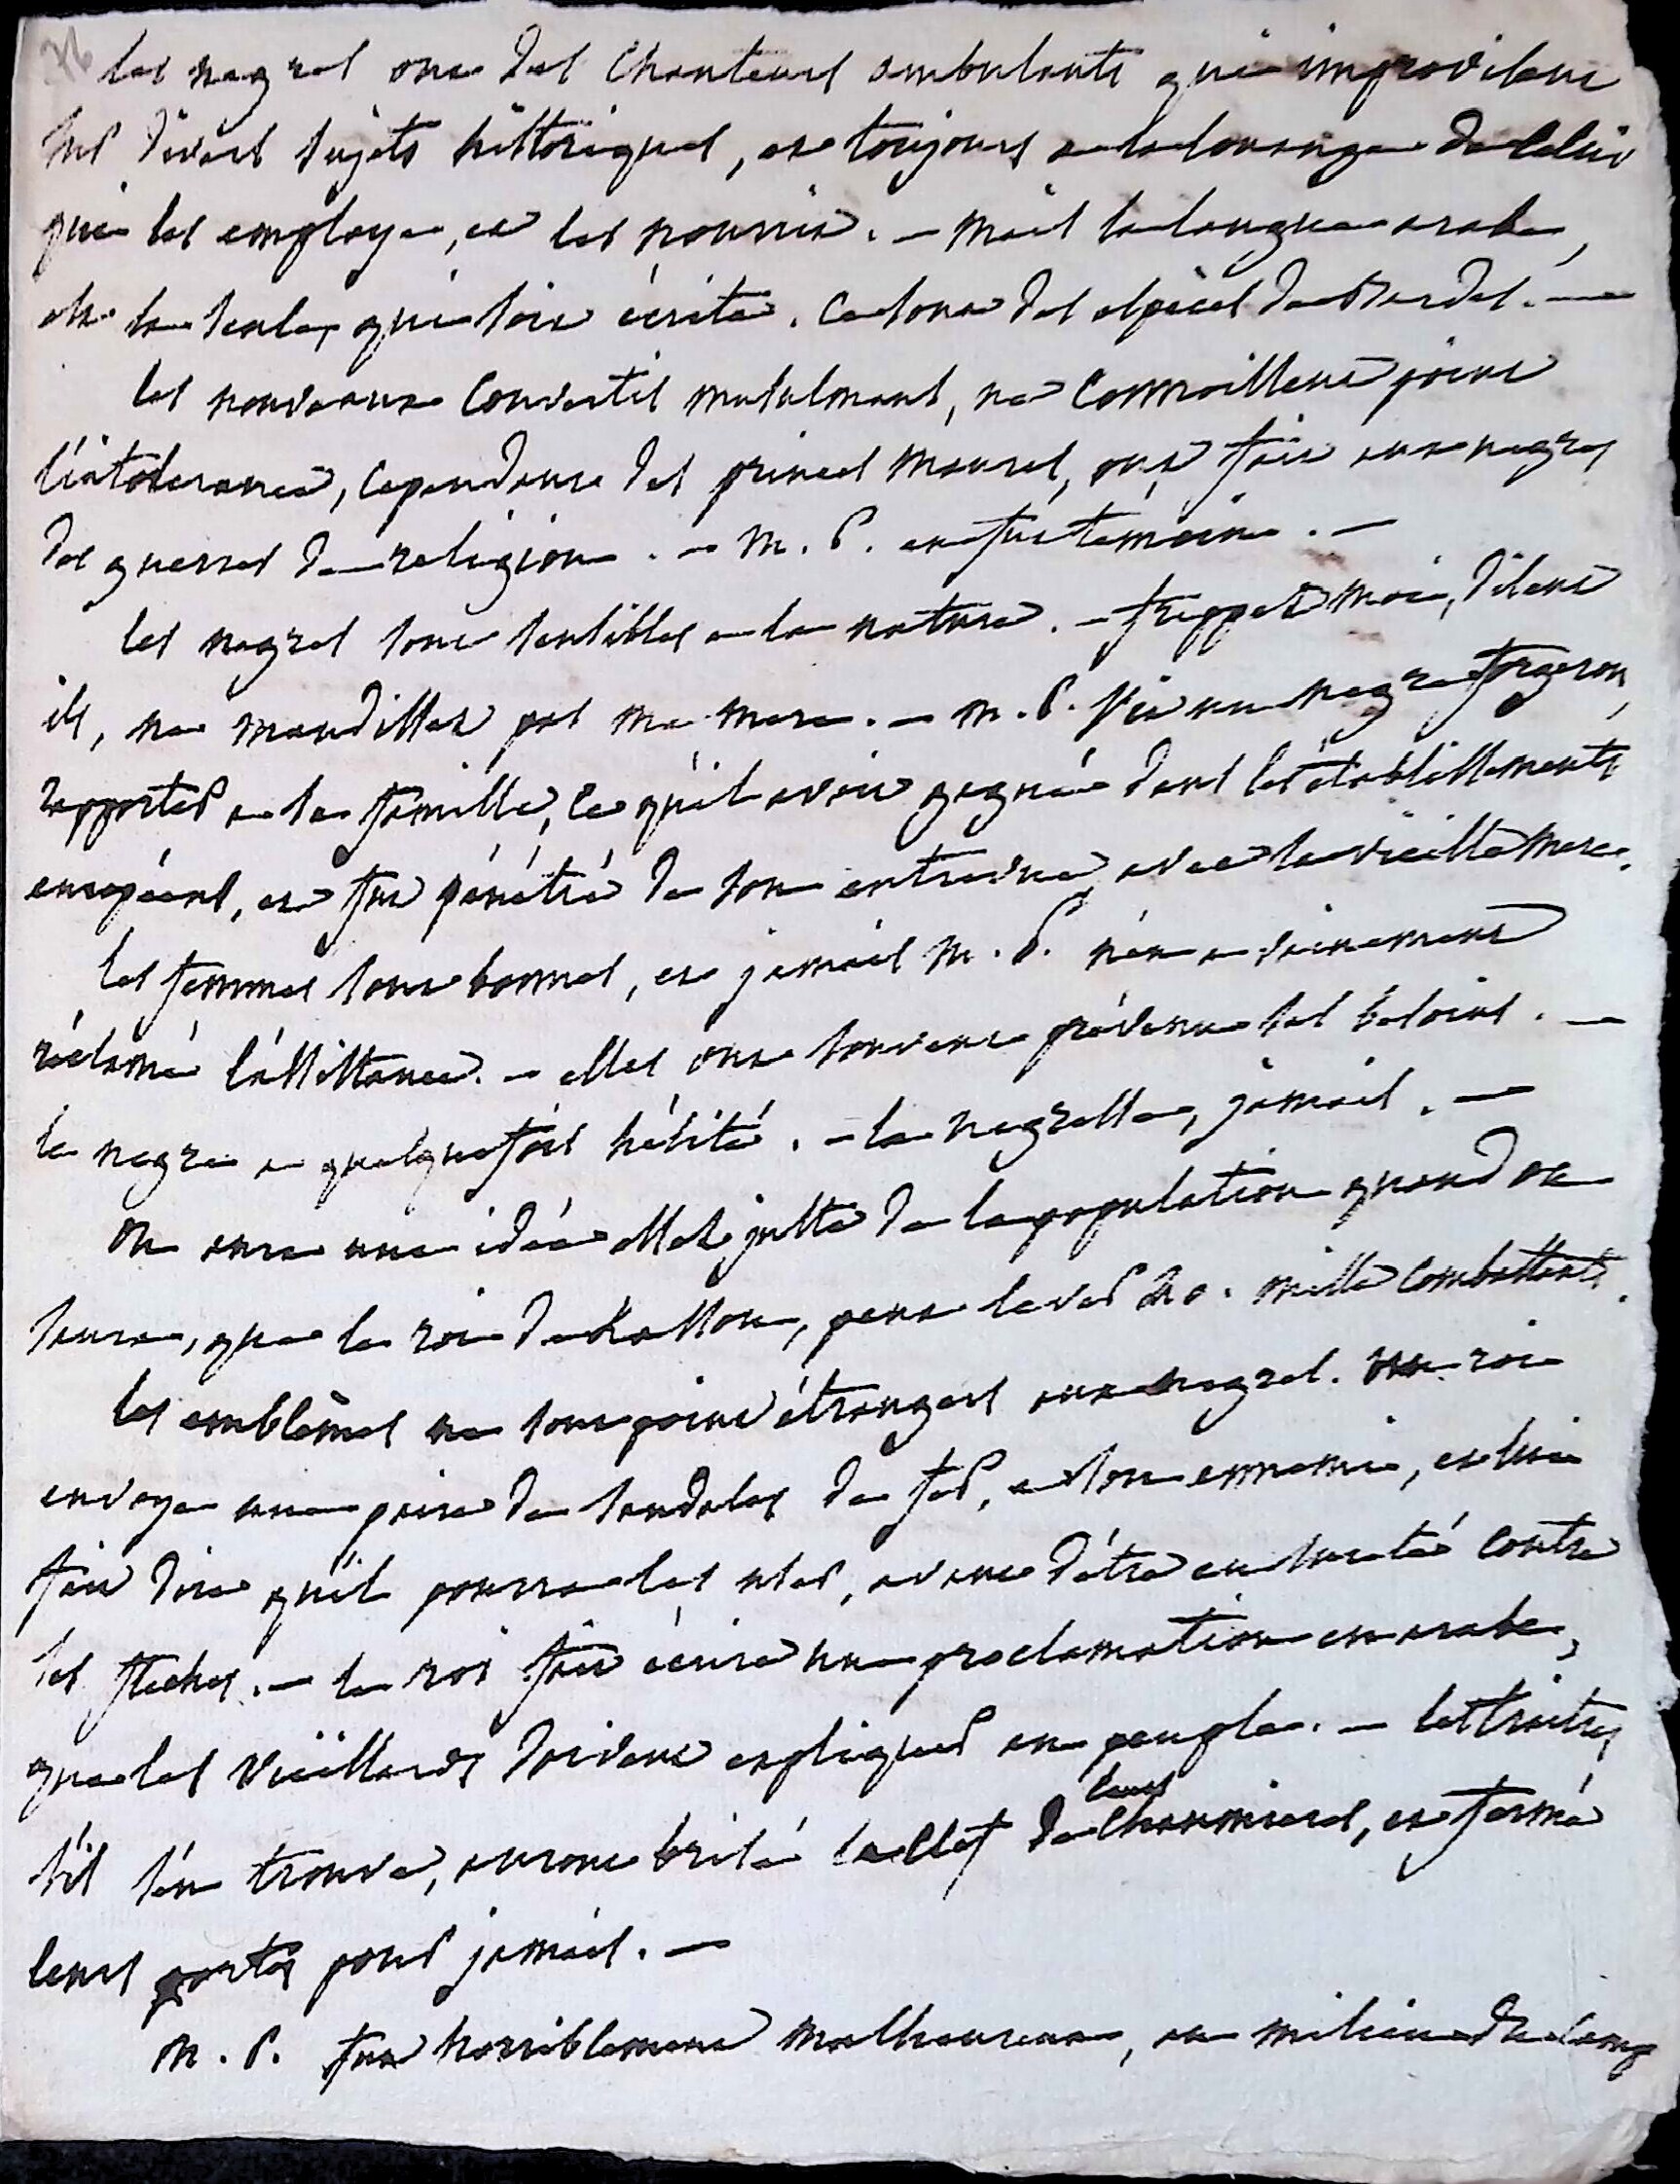 36
les negres ont des chanteurs ambulants qui improvisent
sur divers sujets historiques, et toujours a la louange de celui
qui les employe, et les nourrit. – mais la langue arabe,
est la seule, qui soit écrite. ce sont des espèces de Bardes. –
les nouveaux convertis musulmans, ne connoissent point
l'intolerance, cependant des princes maures, ont fait aux negres
des guerres de religion. – m. P. en fut témoin. –
les negres sont sensibles a la nature. – frappez moi, disent
ils, ne maudissez pas ma mere. – m. P. vit un negre forgeron,
rapporter a sa famille, ce qu'il avoit gagné dans les établissements
européens, et fut pénétré de son entrevue avec sa vieille mere.
les femmes sont bonnes, et jamais m. P. n'en a vainement
réclamé l'assistance. – elles ont souvent prévenu ses besoins. –
le negre a quelquefois hésité. – la negresse, jamais. –
on aura une idée assez juste de la population quand on
saura, que le roi de Kasson, peut lever 40. mille combattants.
les emblêmes ne sont point étrangers aux negres. un roi
envoye une paire de sandales de fer, a son ennemi, et lui
fait dire qu'il pourra les user, avant d'être en sureté contre
ses fleches. – le roi fait écrire une proclamation en arabe,
que les vieillards doivent expliquer au peuple. – les traitres
s'il s'en trouve, auront brisé la clef de leurs chaumieres, et fermé
leurs portes pour jamais. –
m. P. fut horriblement malheureux, au milieu du camp